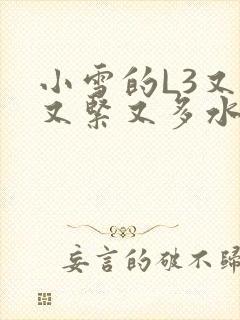 小雪的L3又
又紧又多水
妄言的破不归